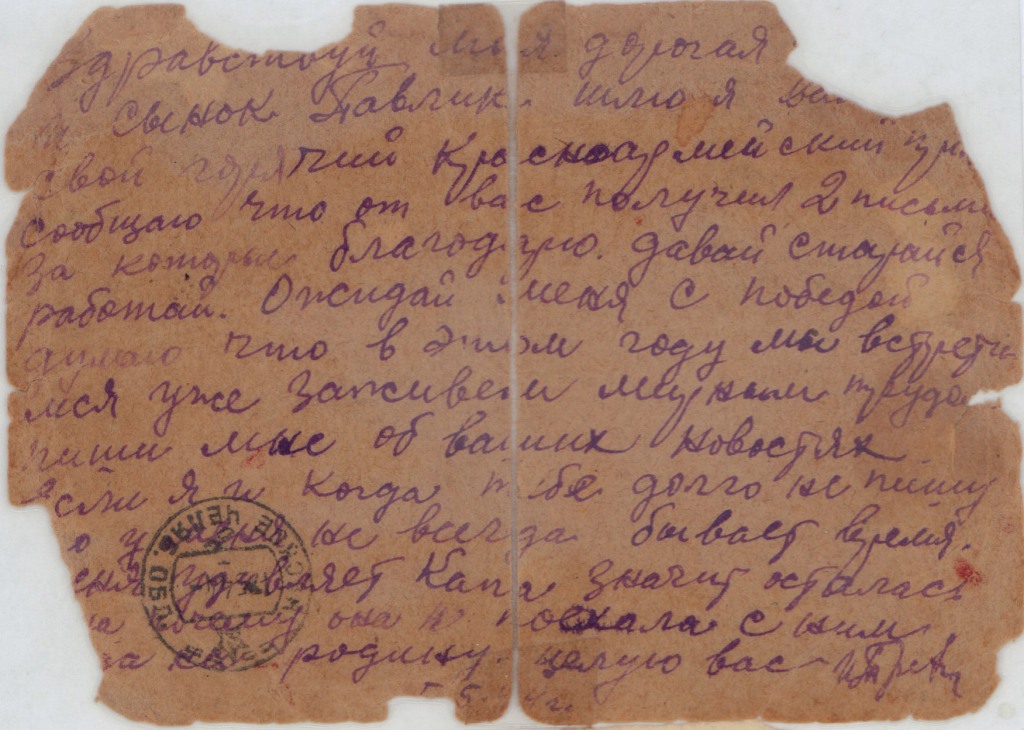 Здравствуй моя дорогая
и сынок Павлик. шлю я вам
свой горячий Красноармейский при
сообщаю что от вас получил 2 письма
за которые благодарю. давай старайся
работай. Ожидай меня с победой
думаю что в этом году мы встрети
мся уже заживем мирным трудо
пиши мне об ваших новостях
если я и когда тебе долго не пишу
о у меня не всегда бывает время.
еня удивляет Капа значит осталась
на она н поехала с ним
за родину. целую вас